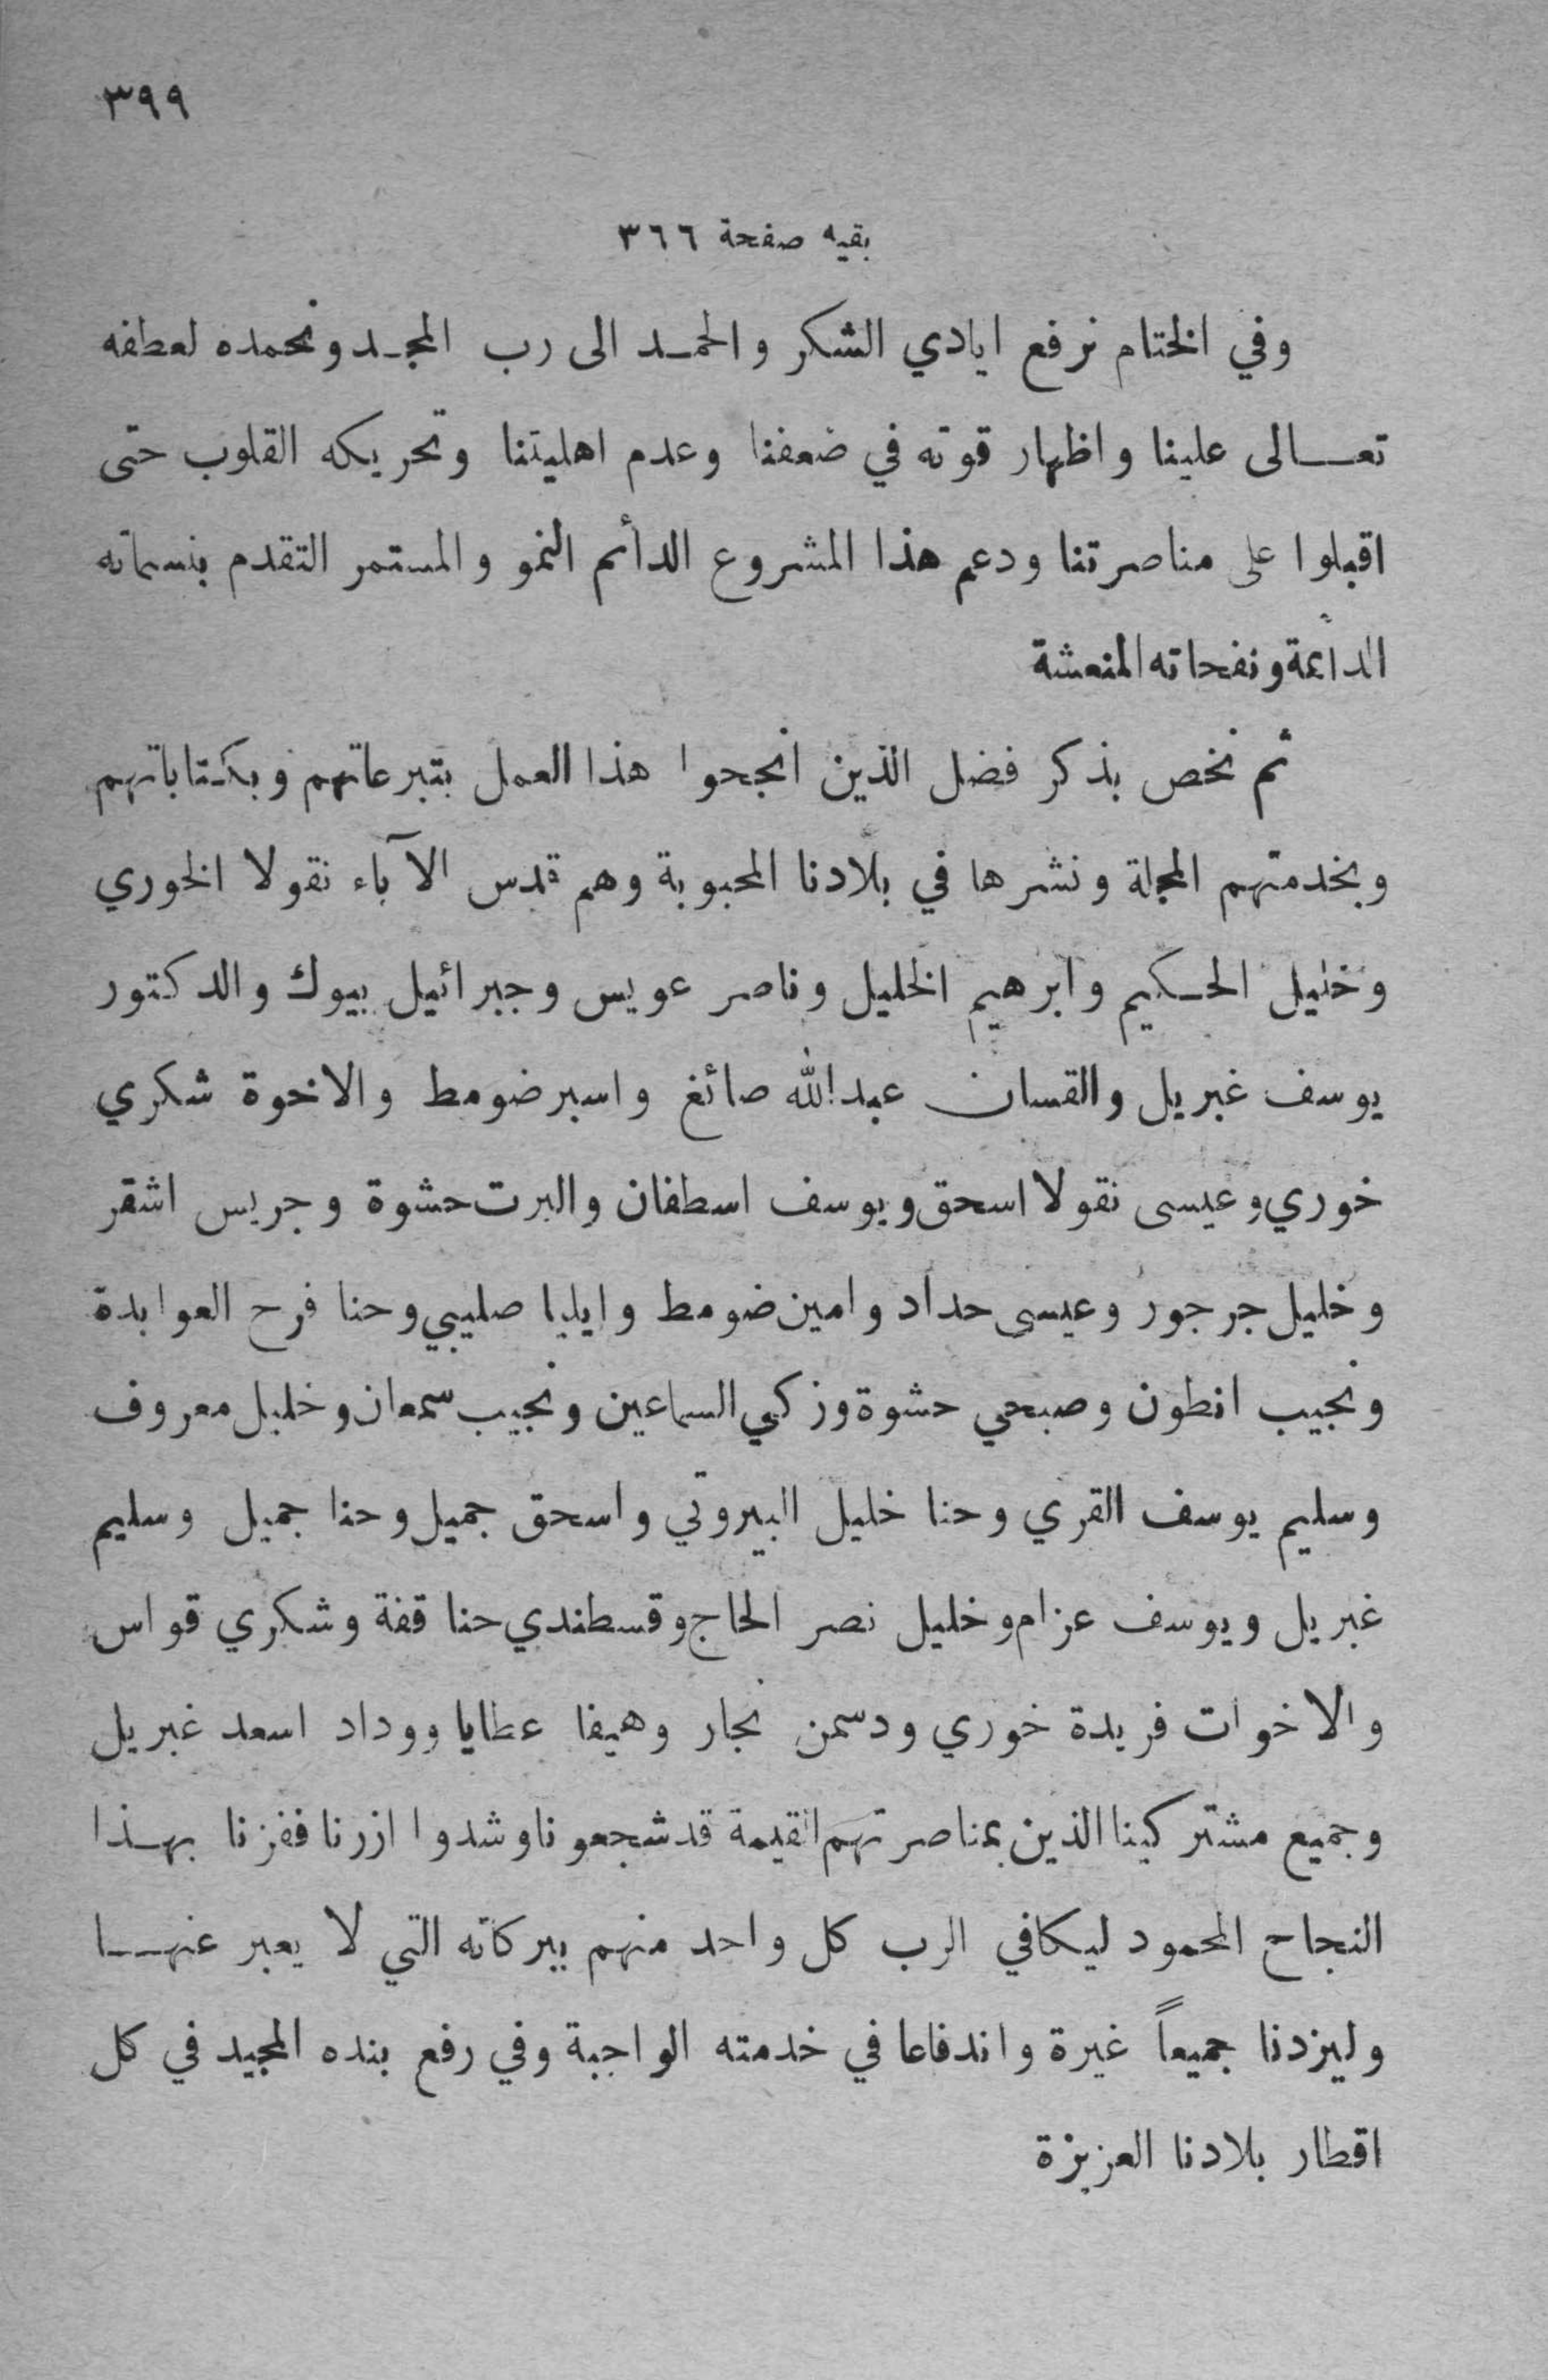 ٣٩٩
بقيه صفحة ٣٦٦
وفي الختام نرفع ايادي الشكر والحمد الى رب المجد ونحمده لعطفه
تعالى علينا واظهار قوته في ضعفنا وعدم اهليتنا وتحريكه القلوب حتى
اقبلوا على مناصرتنا ودعم هذا المشروع الدأم النمو والمستمر التقدم بنسماته
الدأمة ونفحاته المنعشة
ثم نخص بذكر فضل الذين انجحوا هذا العمل بتبرعاتهم وبكتاباتهم
وبخدمتهم المجلة ونشرها في بلادنا المحبوبة وهم قدس الآباء نقولا الخوري
وخليل الحكيم وابرهيم الخليل وناصر عويس وجبرائيل بيوك والدكتور
يوسف غبريل والقسان عبدالله صائغ واسبر ضومط والاخوة شكري
خوري وعيسى نقولا اسحق ويوسف اسطفان والبرت حشوة وجريس اشقر
وخليل جرجور وعيسى حداد وامين ضومط وايليا صليبي وحنا فرح العوابدة
ونجيب انطون وصبحي حشوة وزكي السماعين ونجيب سمعان وخليل معروف
وسليم يوسف القري وحنا خليل البيروتي واسحق جميل وحنا جميل وسليم
غبريل ويوسف عزام وخليل نصر الحاج وقسطندي حنا قفة وشكري قواس
والاخوات فريدة خوري ودسمن نجار وهيفا عطايا ووداد اسعد غبريل
وجميع مشتركينا الذين بمناصرتهم القيمة قد شجعونا وشدوا ازرنا ففزنا بهذا
النجاح المحمود ليكافي الرب كل واحد منهم ببركاته التي لا يعبر عنها
وليزدنا جميعاً غيرة واندفاعا في خدمته الواجبة وفي رفع بنده المجيد في كل
اقطار بلادنا العزيزة